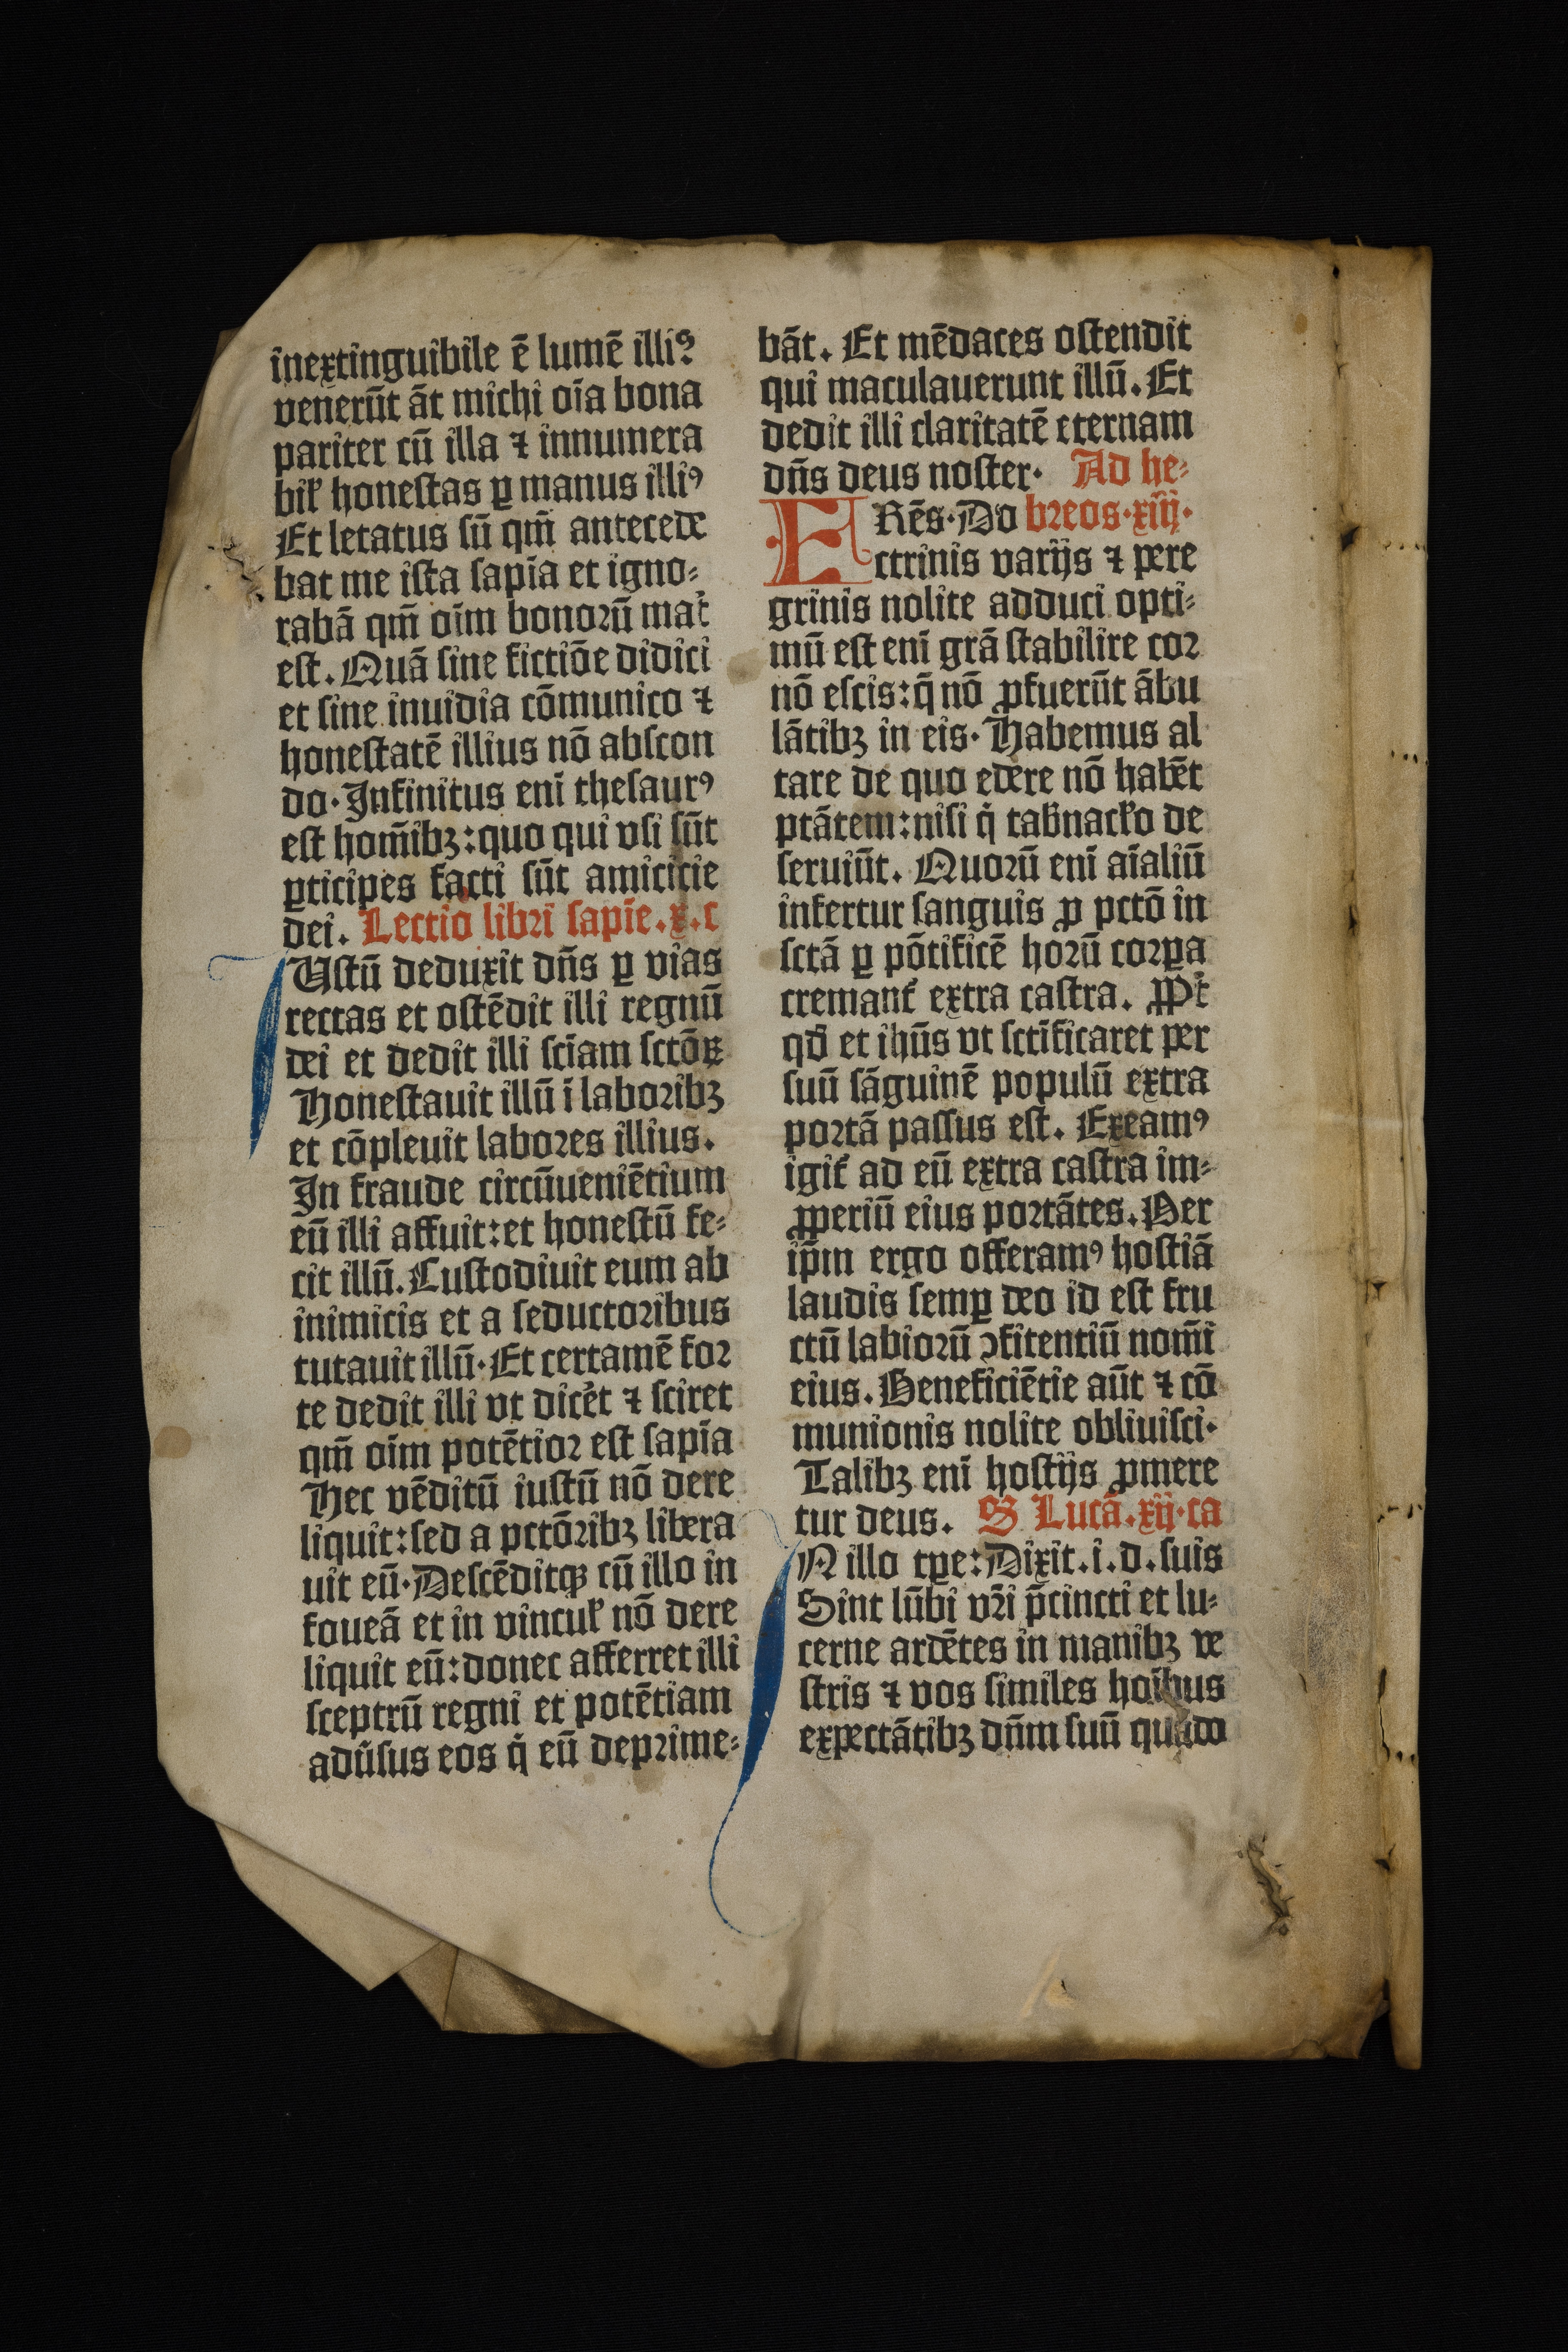 inextinguibile ē lumē illiꝰ
venerūt āt michi oīa bona
pariter cū illa ⁊ innumera
bił honestas ꝑ manus illiꝰ
Et letatus sū qm̄ antecede
bat me ista sapīa et igno⸗
rabā qm̄ oīm bonoꝛū mat᷑
est. Quā sine fictiōe didici
et sine inuidia cōmunico ⁊
honestatē illius nō abscon
do· Infinitus enī thesaurꝰ
est hom̄ibꝫ: quo qui vsi sūt
ꝑticipes facti sūt amicicie
dei. Lectio libri sapīe. x. c
Ustū deduxit dn̄s ꝑ vias
rectas et ostēdit illi regnū
dei et dedit illi sciam sctōꝝ
Honestauit illū ī laboꝛibꝫ
et cōpleuit laboꝛes illius.
In fraude circūueniētium
eū illi affuit: et honestū fe⸗
cit illū. Custodiuit eum ab
inimicis et a seductoꝛibus
tutauit illū· Et certamē foꝛ
te dedit illi vt dic̄et ⁊ sciret
qm̄ oīm potētioꝛ est sapīa
Hec vēditū iustū nō dere
liquit: sed a pctōꝛibꝫ libera
uit eū· Descēditqꝫ cū illo in
foueā et in vincuł nō dere
liquit eū: donec afferret illi
sceptrū regni et potētiam
adūsus eos q̇ eū depꝛime⸗
bāt. Et mēdaces ostendit
qui maculauerunt illū. Et
dedit illi claritatē eternam
dn̄s deus noster· Ad he⸗
FRēs· Do breos· xiij·
ctrinis varijs ⁊ pere
grinis nolite adduci opti⸗
mū est enī grā stabilire coꝛ
nō escis: q̄ nō ꝓfuerūt ābu
lātibꝫ in eis· Habemus al
tare de quo edere nō habēt
ptātem: nisi q̇ tab̄nacło de
seruiūt. Quoꝛū enī aīaliū
infertur sanguis ꝓ pctō in
sctā ꝑ pōtificē hoꝛū coꝛꝑa
cremant᷑ extra castra. ꝓPt᷑
qđ et ihūs vt sctīficaret per
suū sāguinē populū extra
poꝛtā passus est. Exeamꝰ
igit᷑ ad eū extra castra im⸗
ꝓperiū eius poꝛtātes. Per
ip̄m ergo offeramꝰ hostiā
laudis semꝑ deo id est fru
ctū labioꝛū ꝯfitentiū nom̄i
eius. Beneficiētie aūt ⁊ cō
munionis nolite obliuisci·
Talibꝫ enī hostijs ꝓmere
tur deus. S Lucā. xij· ca
N illo tꝑe: Dixit. i. d. suis
Sint lūbi vr̄i p̄cincti et lu⸗
cerne ardētes in manibꝫ ve
stris ⁊ vos similes hoībus
expectātibꝫ dn̄m suū quādo